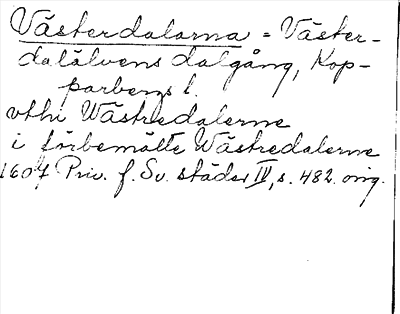 Västerdalarna = Väster-
dalälvens dalgång, Kop-
parbergs l.
vthi Wästredalerne
i förbemälte Wästredalerne
1607 Priv. f. Sv. städer IV, s. 482. orig.